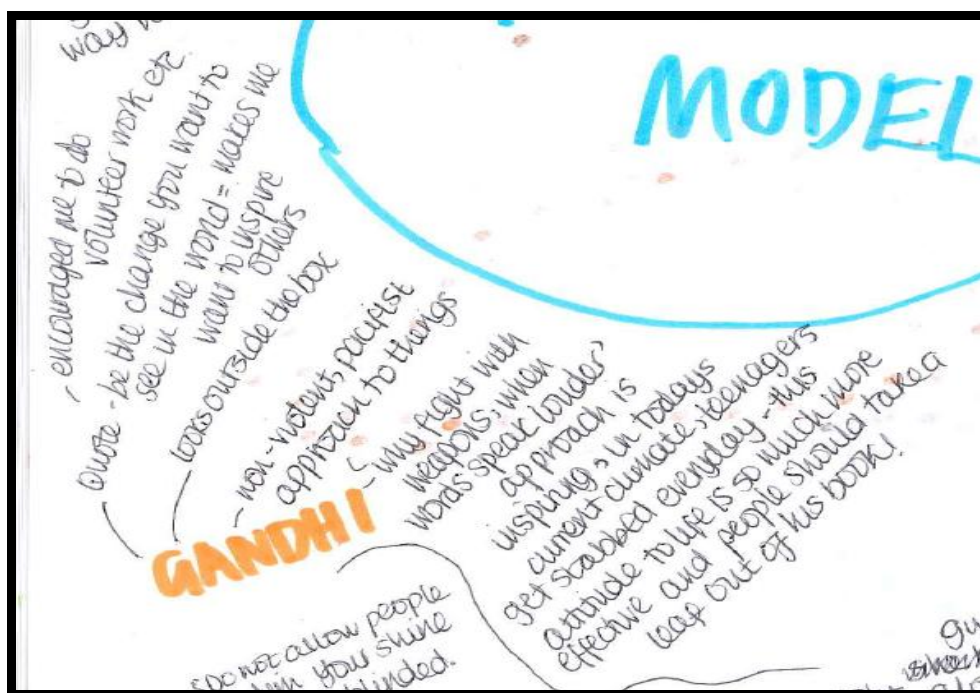 way
MODEL
- encouraged me to do
volunteer work etc.
Quote - be the change you want to
see in the world = makes me
want to inspire
others
looks outside the box
- non-violent, pacifist
approach to things
- 'why fight with
weapons, when
words speak louder'
approach is
inspiring, in todays
current climate, teenagers
get stabbed everyday - this
attitude to life is so much more
effective and people should take a
leaf out of his book!
GANDHI
"Do not allow people
your shine
blinded.